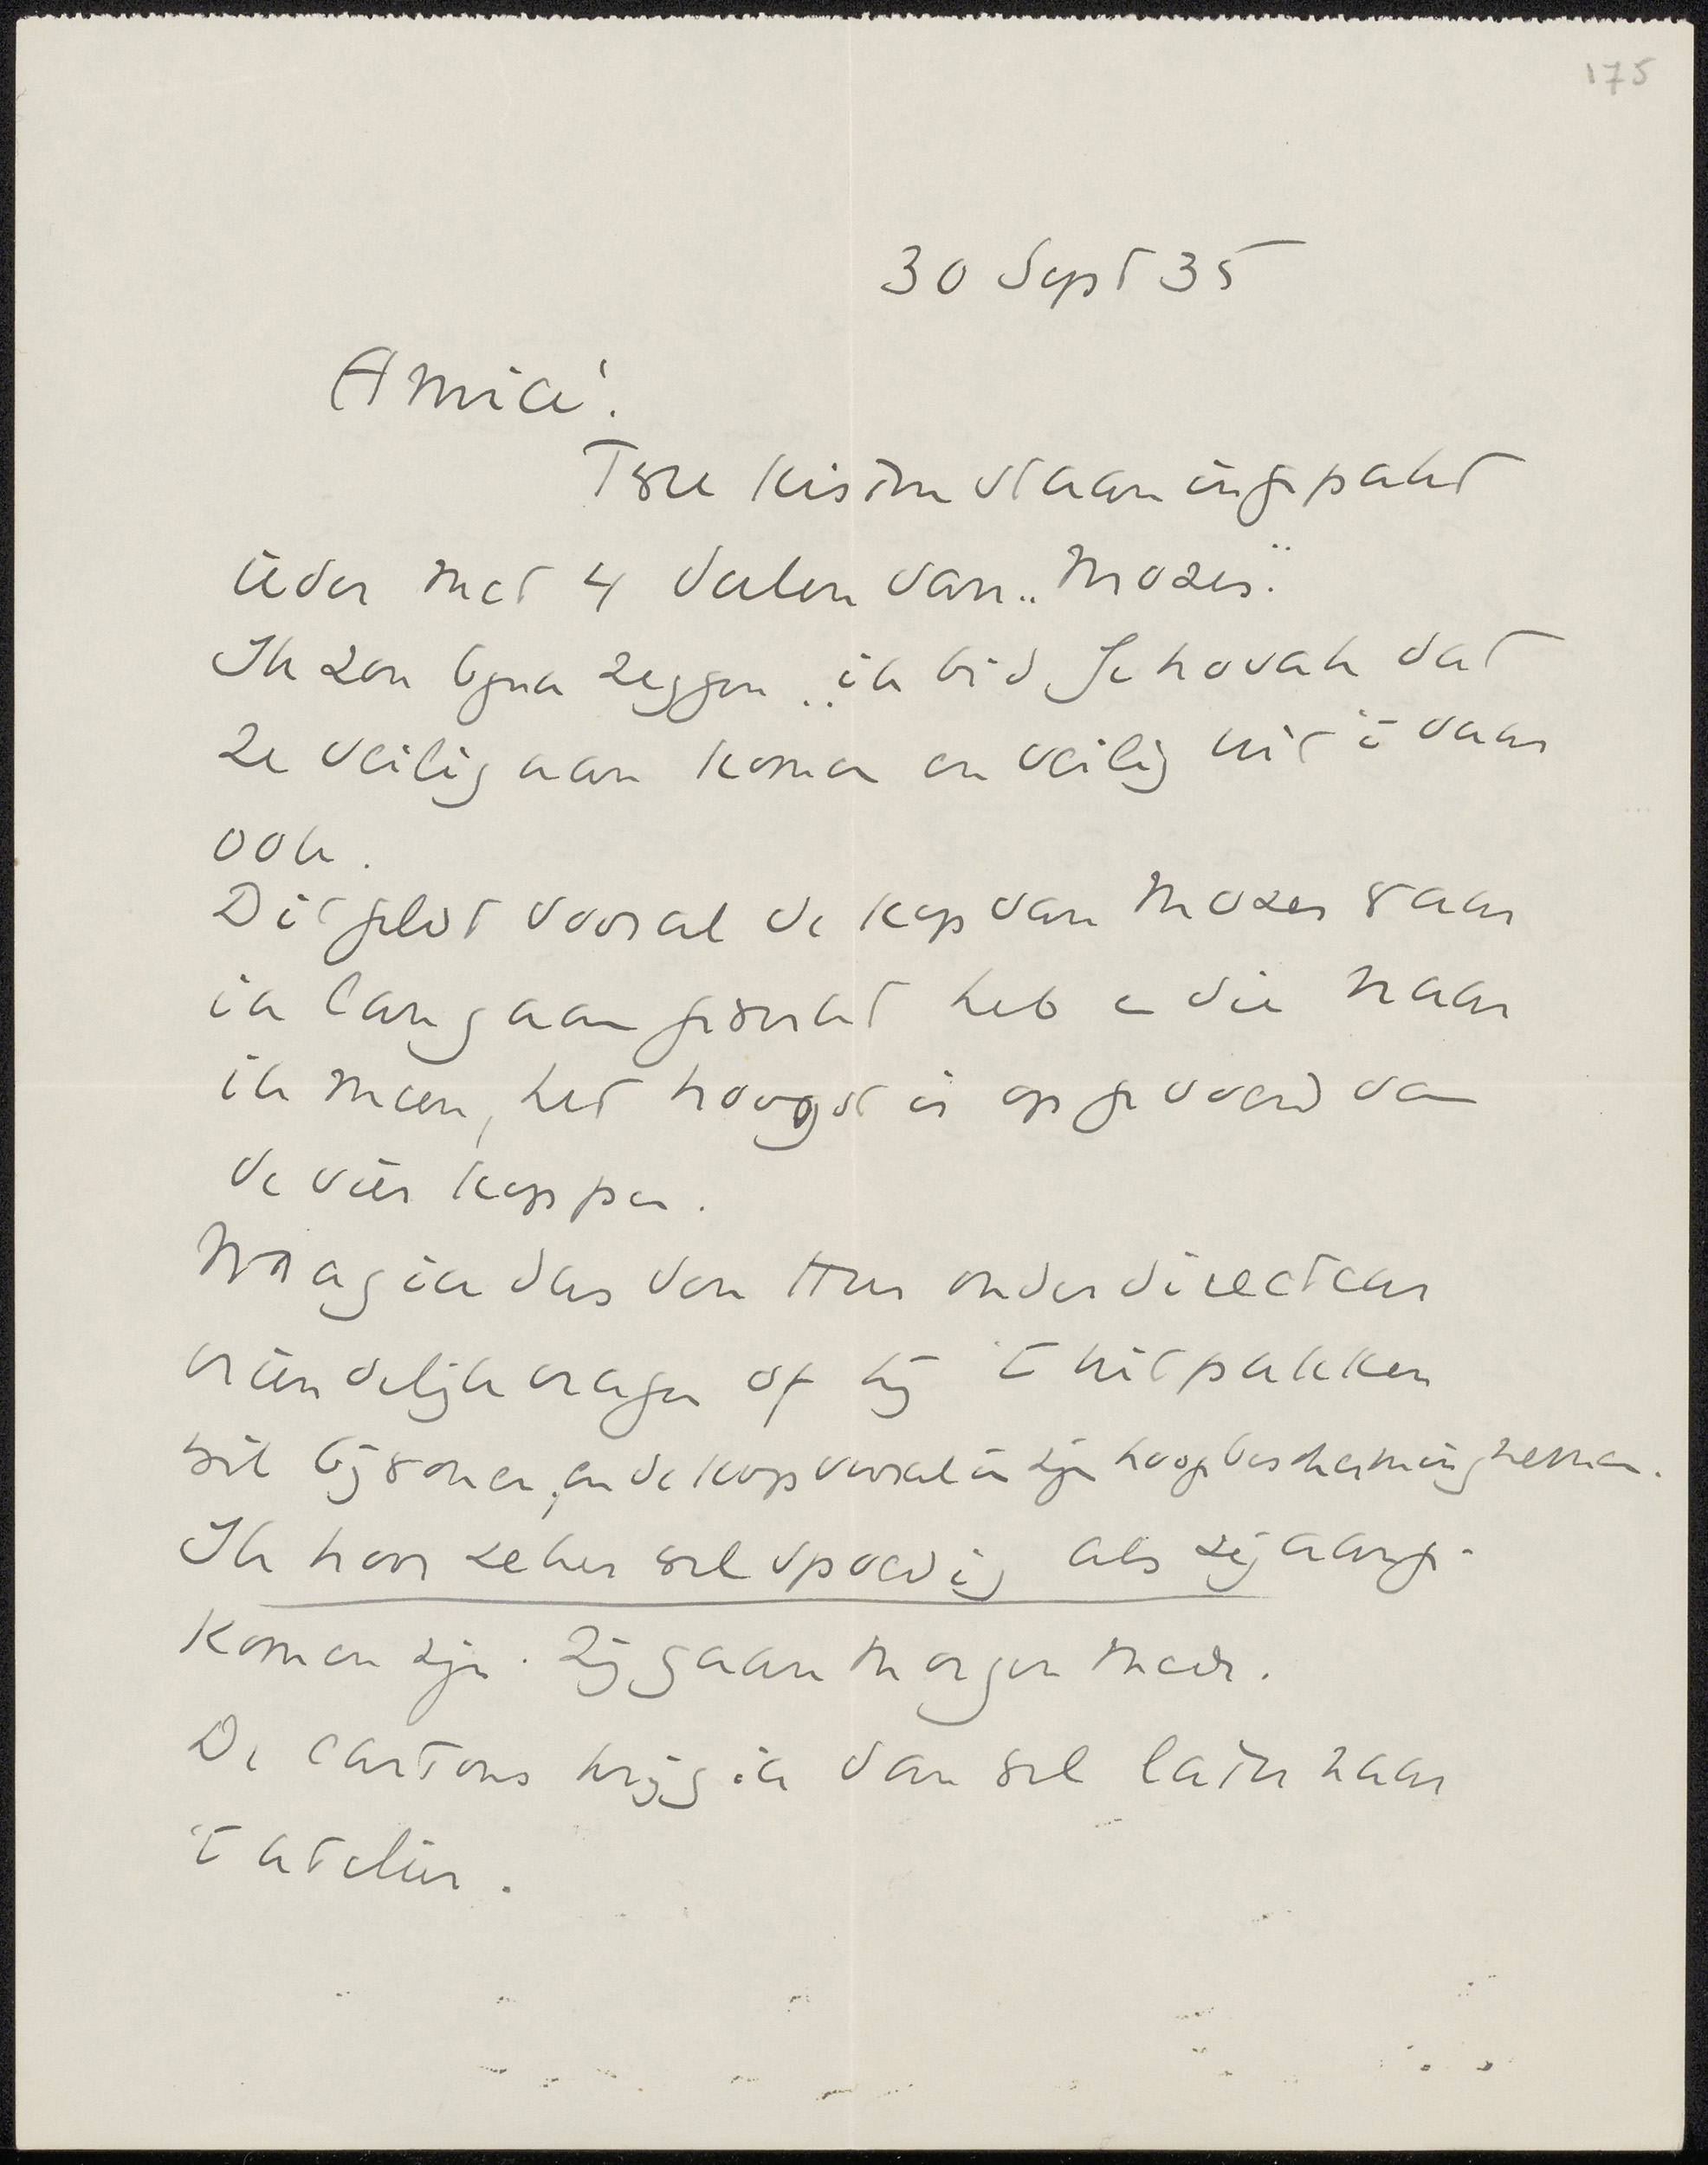 175
30 Sept 35
Amice!
Twee kisten staan ingepakt
ieder met 4 deelen van „Mozes".
Ik zou bijna zeggen „ik bid Jehovah dat
ze veilig aan komen en veilig uit 't vaar
ook.
Dit geldt vooral de kop van Mozes waar
ik lang aan gewerkt heb en die naar
ik meen, het hoogst is opgevoerd van
de vier koppen.
Mag ik dus den Heer onderdirecteur
vriendelijk vragen of hij 't uitpakken
wil bijwonen, en de kop vooral in zijn hooge bescherming nemen.
Ik hoor zeker wel spoedig als zij aange-
komen zijn. Zij gaan morgen mee.
De cartons krijg ik dan wel later naar
't atelier.